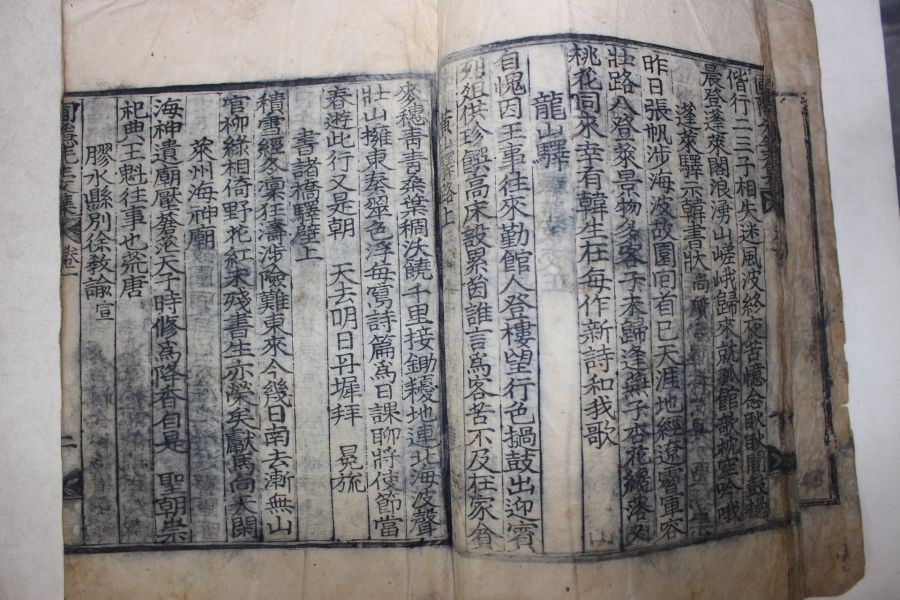 偕行二三子相失迷風波終夜苦憶念耿耿聞鼓撾
晨登蓬萊閣浪湧山嵯峨歸來就孤館欹枕空吟哦
蓬萊驛示韓書狀
昨日張帆涉海波故園回首已天涯地經遼霫軍容
壯路入登萊景物多客子未歸逢燕子杏花纔落又
桃花同來幸有韓生在每作新詩和我歌
龍山驛
自愧因王事往來勤館人登樓望行色撾鼓出迎賓
列俎供珍饌高床設累茵誰言爲客苦不及在家貧
黃山驛路上
來穗靑靑桑葉稠沃饒千里接鋤耰地連北海波聲
壯山擁東秦翠色浮每寫詩篇爲日課聊將使節當
春遊此行又是朝 天去明日丹墀拜 冕旒
書諸橋驛壁上
積雪經冬凜狂濤涉險難東來今幾日南去漸無山
官柳綠相倚野花紅未殘書生亦榮矣獻馬向天閑
萊州海神廟
海神遺廟壓蒼茫天子時修爲降香自是 聖朝崇
祀典王魁往事也荒唐
膠水縣別徐敎諭宣
卷一
二